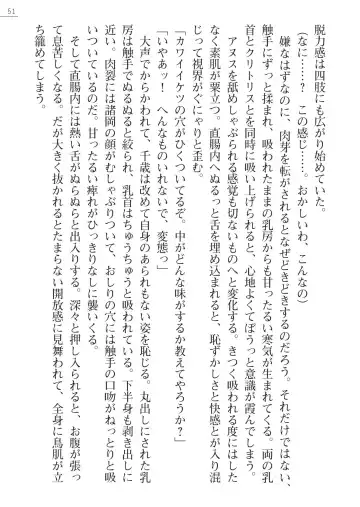 51
脱力感は四肢にも広がり始めていた。
（なに……？　この感じ……。おかしいわ、こんなの）
嫌なはずなのに、肉芽を転がされるとなぜどきどきするのだろう。それだけではない、
触手に吸われたままの乳房からも甘ったるい寒気が生まれてくる。両の乳
首とクリトリスとを同時に吸い上げられると、心地よくてぼうっと意識が霞んでしまう。
アヌスを舐めしゃぶられる感覚も切ないものへと変化する。きつく吸われる度にはしたな
く素肌が粟立つ。直腸内へぬるっと舌を埋め込まれると、恥ずかしさと快感とが入り混
じって視界がぐにゃりと歪む。
「カワイイケツの穴がひくついてるぞ。中がどんな味がするか教えてやろうか？」
「いやあッ！　へんなものいれないで、変態っ」
大声でからかわれて、千歳は改めて自身のあられもない姿を恥じる。丸出しにされた乳
房は触手でぬるぬると絞られ、乳首はちゅうちゅうと吸われている。下半身も剥き出しに
近い。肉裂には諸岡の顔がむしゃぶりついて、おしりの穴には触手の口吻がねっとりと吸
いついているのだ。甘ったるい痺れがひっきりなしに襲いくる。
そして直腸内には熱い舌がぬらぬらと出入りする。深々と押し入られると、お腹が張っ
て息苦しくなる。だが大きく抜かれるとたまらない開放感に見舞われて、全身に鳥肌が立
ち籠めてしまう。